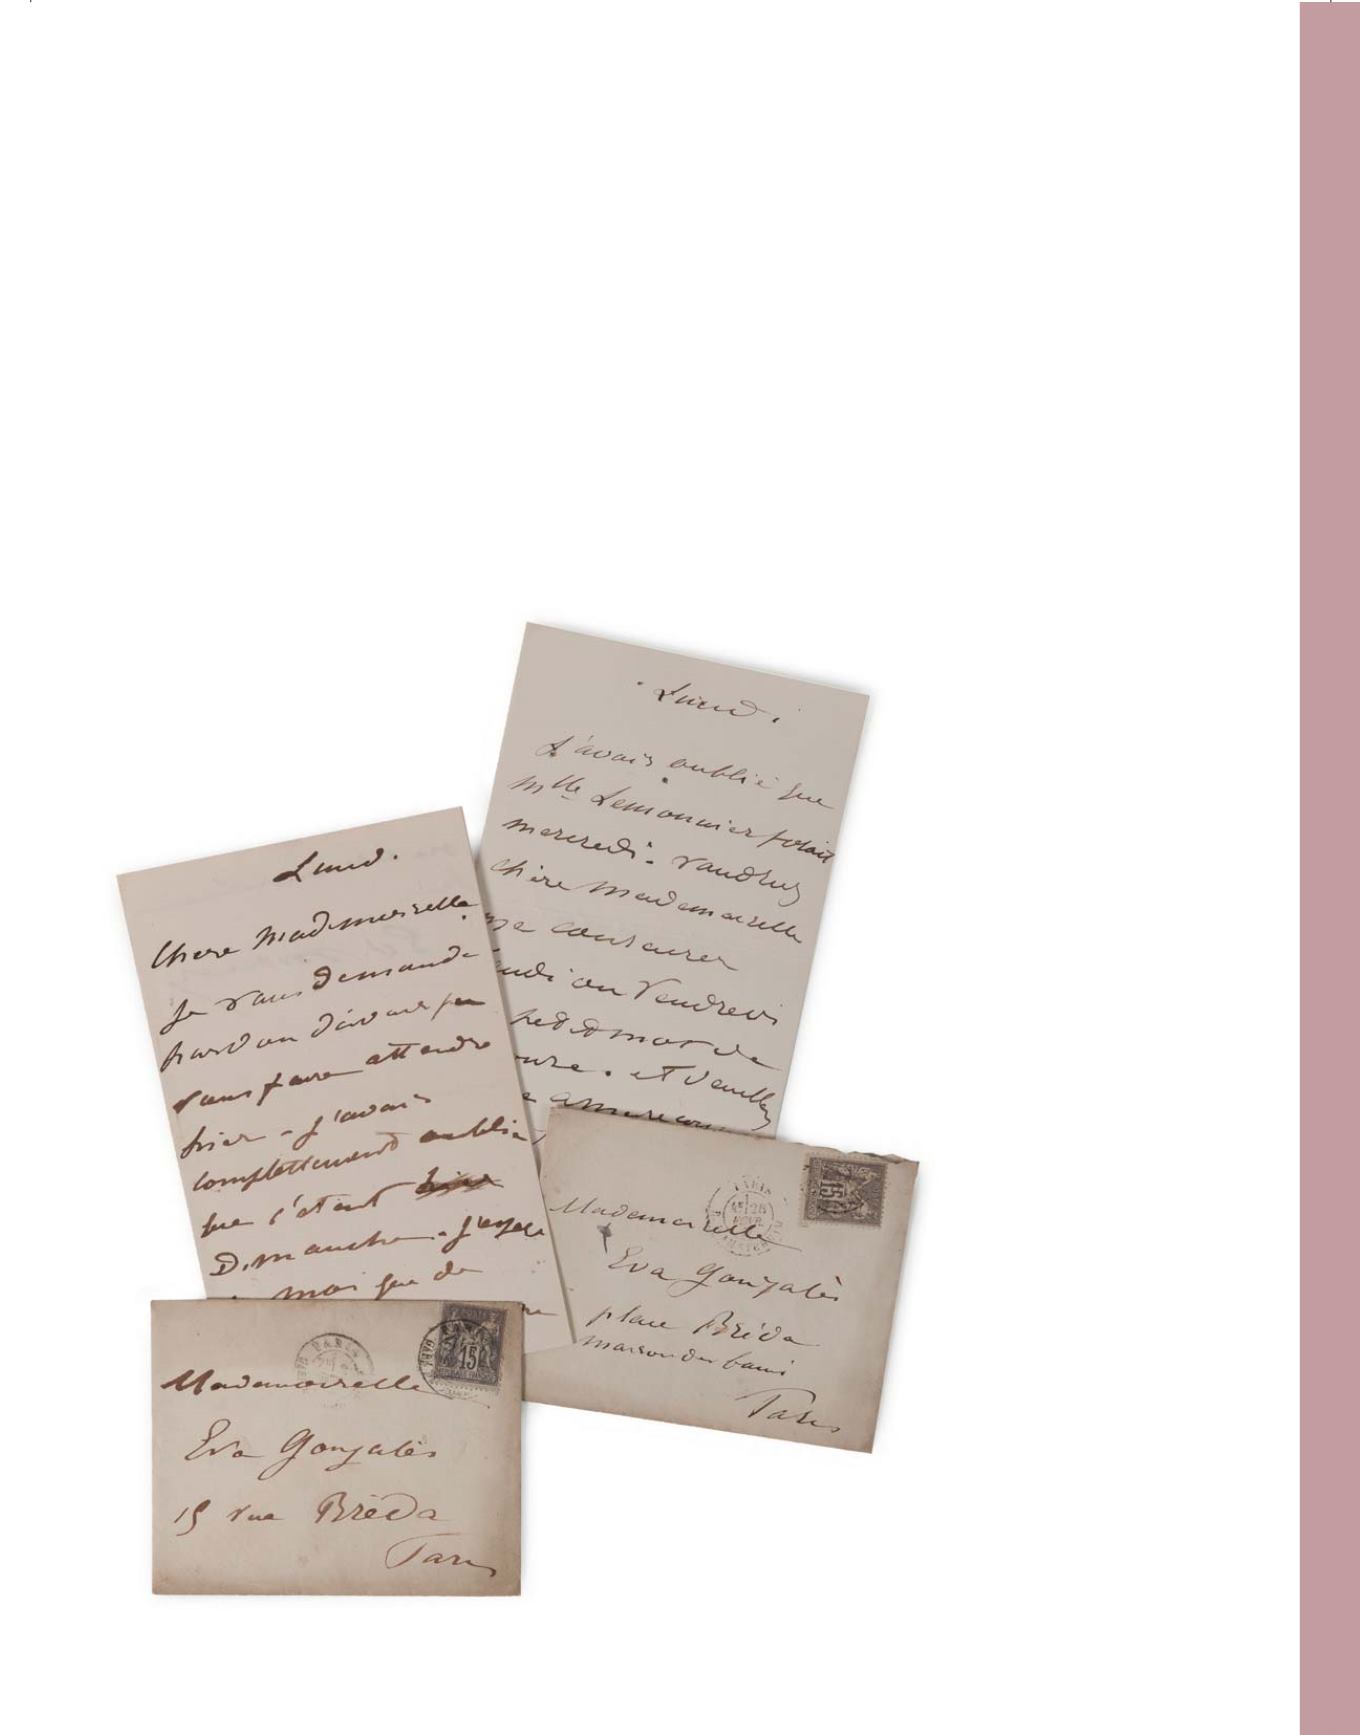 Lundi.
Chère Mademoiselle
Je vous demande
pardon d'avoir pu
vous faire attendre
hier - j'avais
complettement oublié
que c'était
Dimanche - j'espère
moi que de
Lundi.
J'avais oublié que
Mlle Lemonnier posait
mercredi - voudrez
chère Mademoiselle
me consacrer
ou Vendredi
petit mot de
. et veuillez
Mademoiselle
Eva Gonzalès
15 rue Bréda
Paris
PARIS
15
Mademoiselle
Eva Gonzalès
place Bréda
maison des bains
Paris
PARIS
15